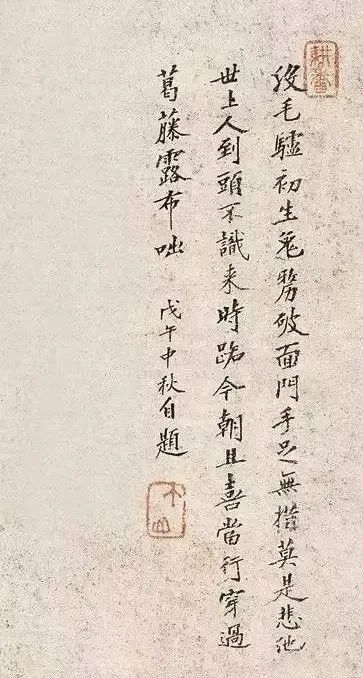 耕香
没毛驢初生兔剺破面門手足無措莫是悲他
世上人到頭不識来時路今朝且喜當行穿過
葛藤露布咄 戊午中秋自題